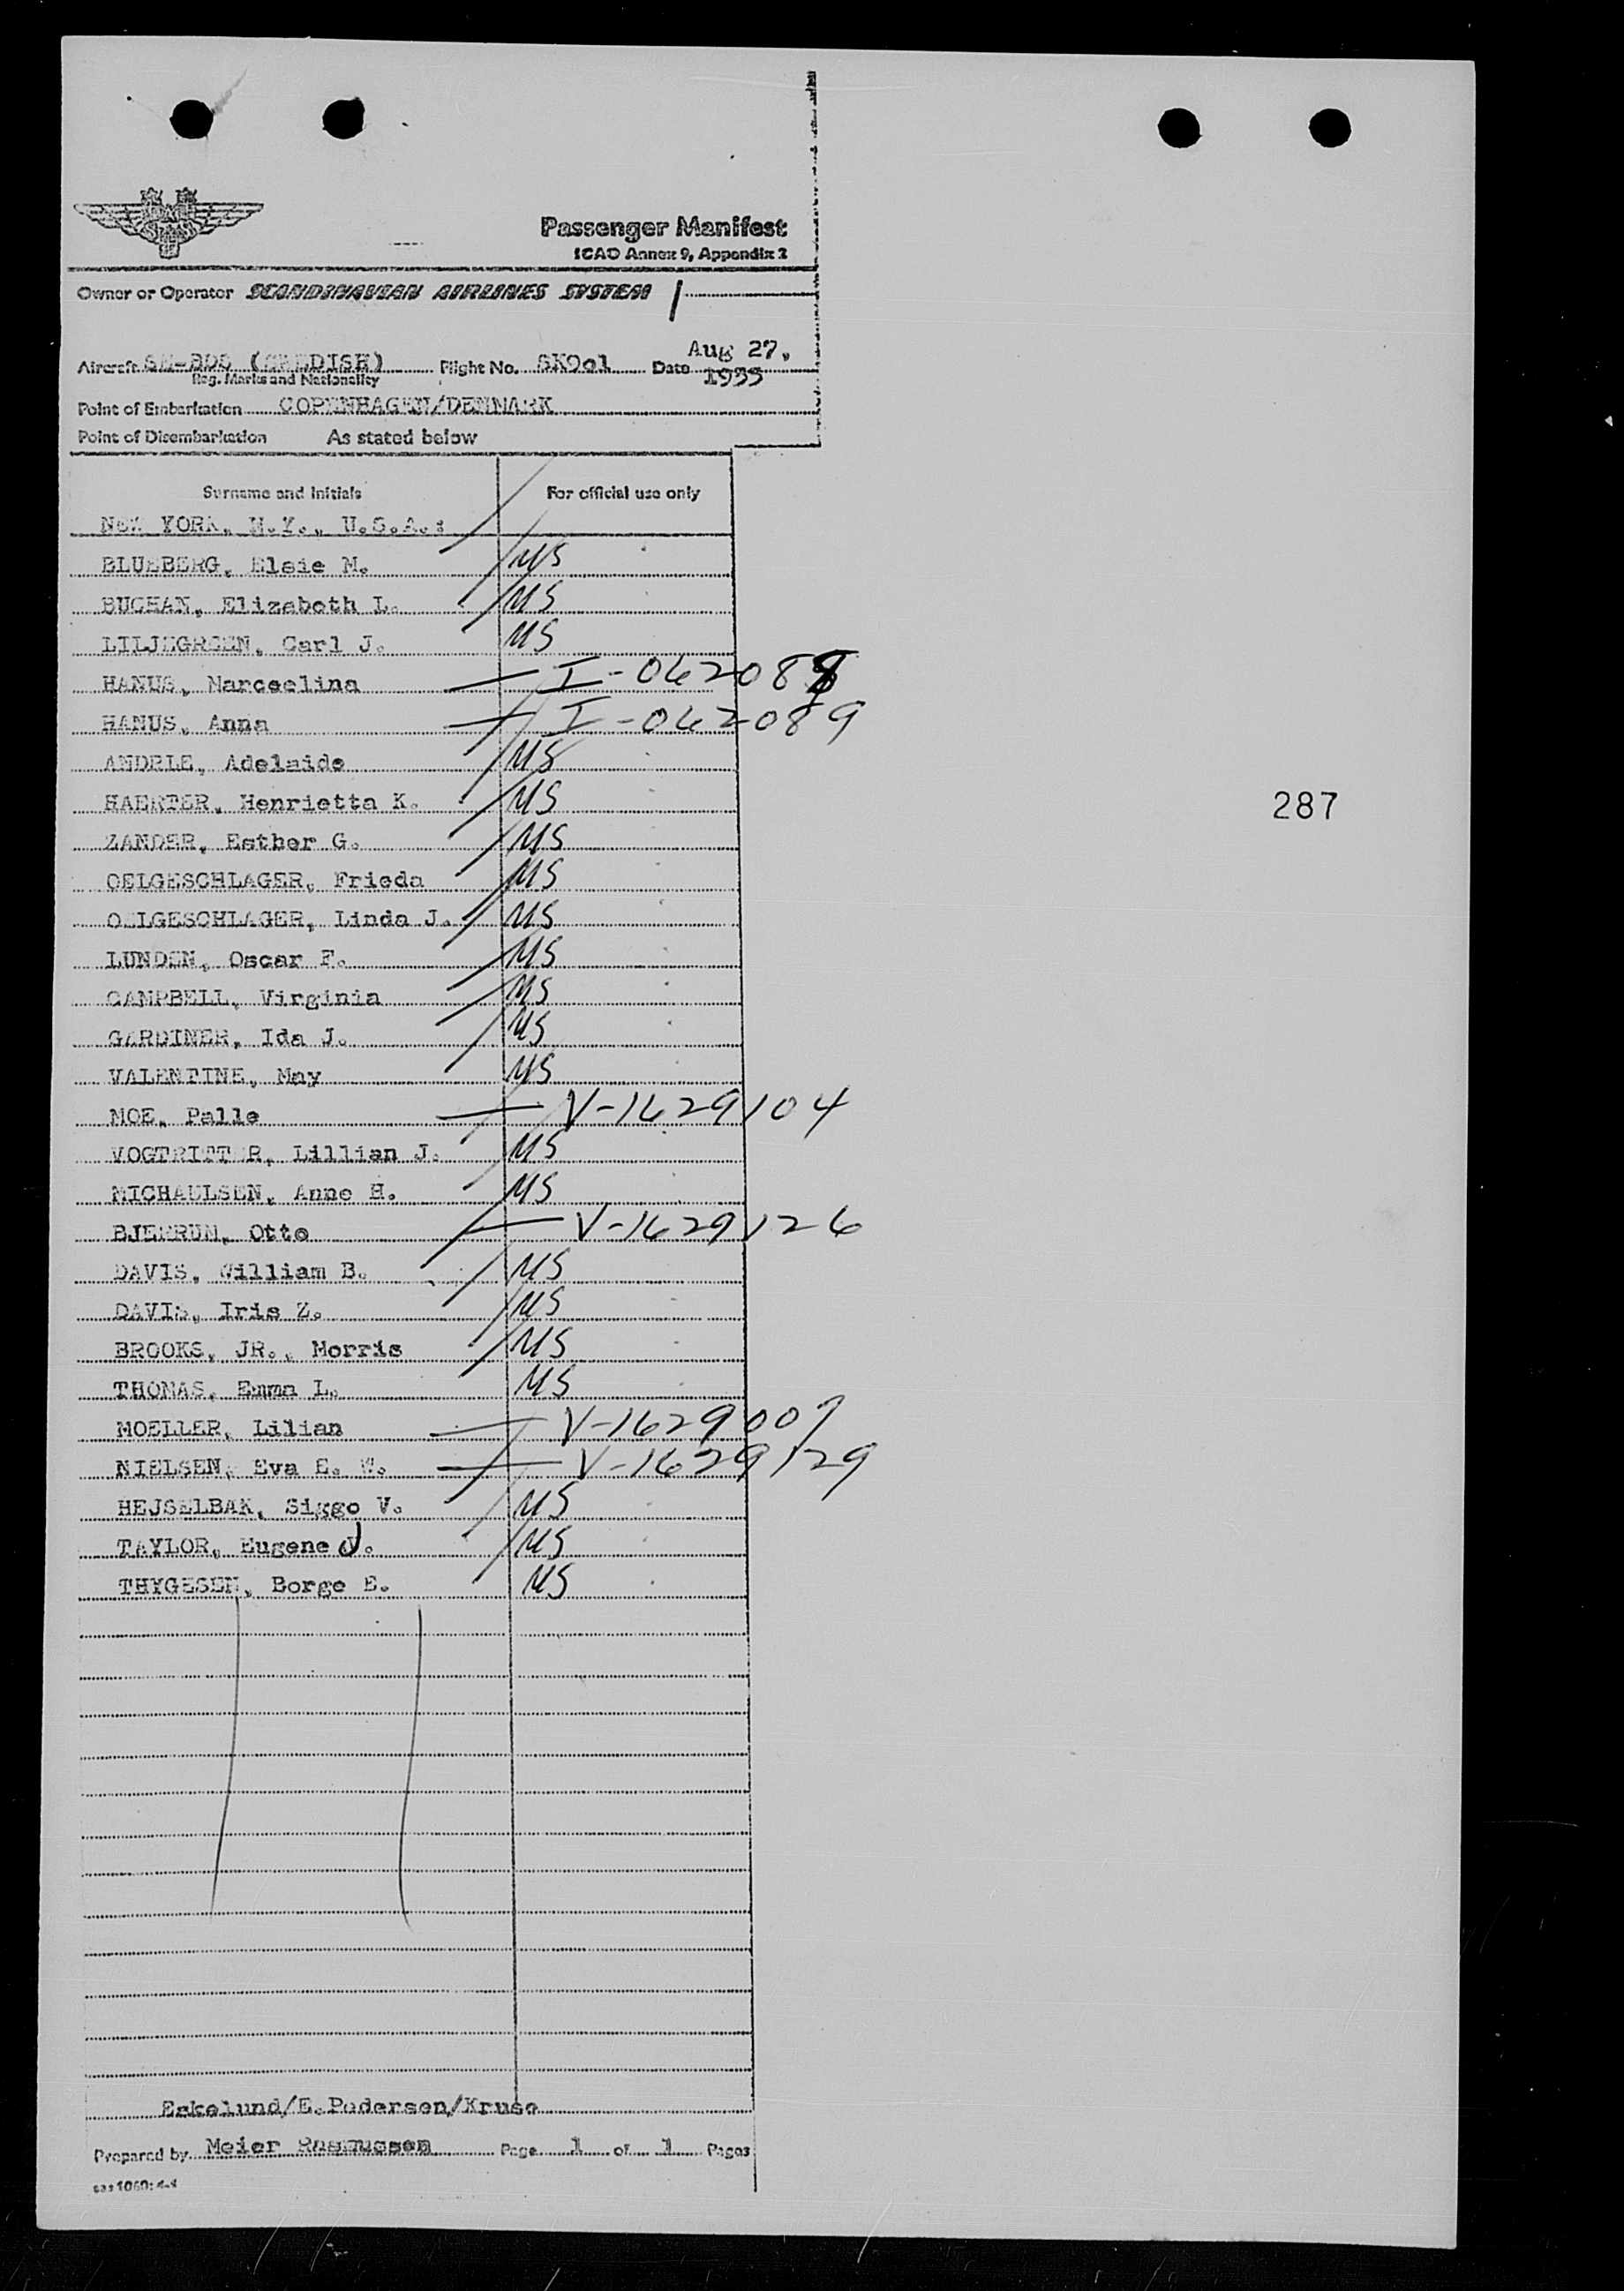 Passenger Manifest
ICAO Annex 9, Appendix 2
Owner or Operator SCANDINAVIAN AIRLINES SYSTEM
Aug 27,
Aircraft SE-BDS (SWEDISH) Flight No. SK901 Date 1955
Reg. Marks and Nationality
Point of Embarkation COPENHAGEN/DENMARK
Point of Disembarkation As stated below
Surname and Initials For official use only
NEW YORK, N.Y., U.S.A.:
BLUEBERG, Elsie M. US
BUCHAN, Elizabeth L. US
LILJEGREEN, Carl J. US
HANUS, Marceelina I-062088
HANUS, Anna I-062089
ANDRLE, Adelaide US
HAERTER, Henrietta K. US
ZANDER, Esther G. US
OELGESCHLAGER, Frieda US
OELGESCHLAGER, Linda J. US
LUNDEN, Oscar F. US
CAMPBELL, Virginia US
GARDINER, Ida J. US
VALENTINE, May US
MOE, Palle V-1629104
VOGTRITTER, Lillian J. US
MICHAULSEN, Anne H. US
BJERRUM, Otto V-1629126
DAVIS, William B. US
DAVIS, Iris Z. US
BROOKS, JR., Morris US
THOMAS, Emma L. US
MOELLER, Lilian V-1629007
NIELSEN, Eva E. W. V-1629129
HEJSELBAK, Siggo V. US
TAYLOR, Eugene J. US
THYGESEN, Borge E. US
287
Eskelund/E.Pedersen/Kruse
Prepared by Meier Rasmussen Page 1 of 1 Pages
sas 1060: 4-4